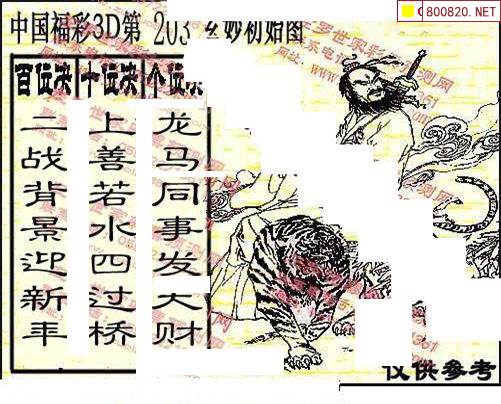 800820.NET
中国福彩3D第 203 玄妙初始图
百位决 十位决 个位
二战背景迎新年
上善若水四过桥
龙马同事发大财
仅供参考